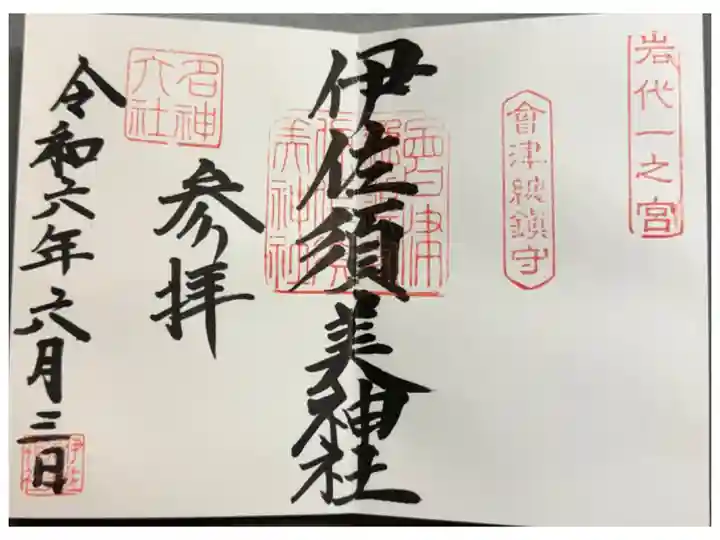 岩代一之宮
會津總鎮守
伊佐須美神社
参拝
名神
大社
令和六年六月三日